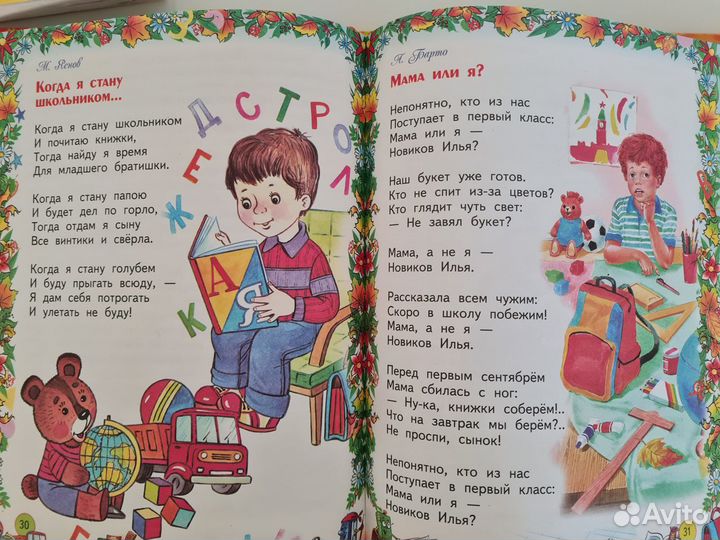 М. Яснов
Когда я стану
школьником...
Когда я стану школьником
И почитаю книжки,
Тогда найду я время
Для младшего братишки.
Когда я стану папою
И будет дел по горло,
Тогда отдам я сыну
Все винтики и свёрла.
Когда я стану голубем
И буду прыгать всюду, —
Я дам себя потрогать
И улетать не буду!
Д С Т Р О
Е
Л
Ж
К
А
Я
Е
30
А. Барто
Мама или я?
Непонятно, кто из нас
Поступает в первый класс:
Мама или я —
Новиков Илья?
Наш букет уже готов.
Кто не спит из-за цветов?
Кто глядит чуть свет:
— Не завял букет?
Мама, а не я —
Новиков Илья.
Рассказала всем чужим:
Скоро в школу побежим!
Мама, а не я —
Новиков Илья.
Перед первым сентябрём
Мама сбилась с ног:
— Ну-ка, книжки соберём!..
Что на завтрак мы берём?..
Не проспи, сынок!
Непонятно, кто из нас
Поступает в первый класс:
Мама или я —
Новиков Илья?
31
Avito